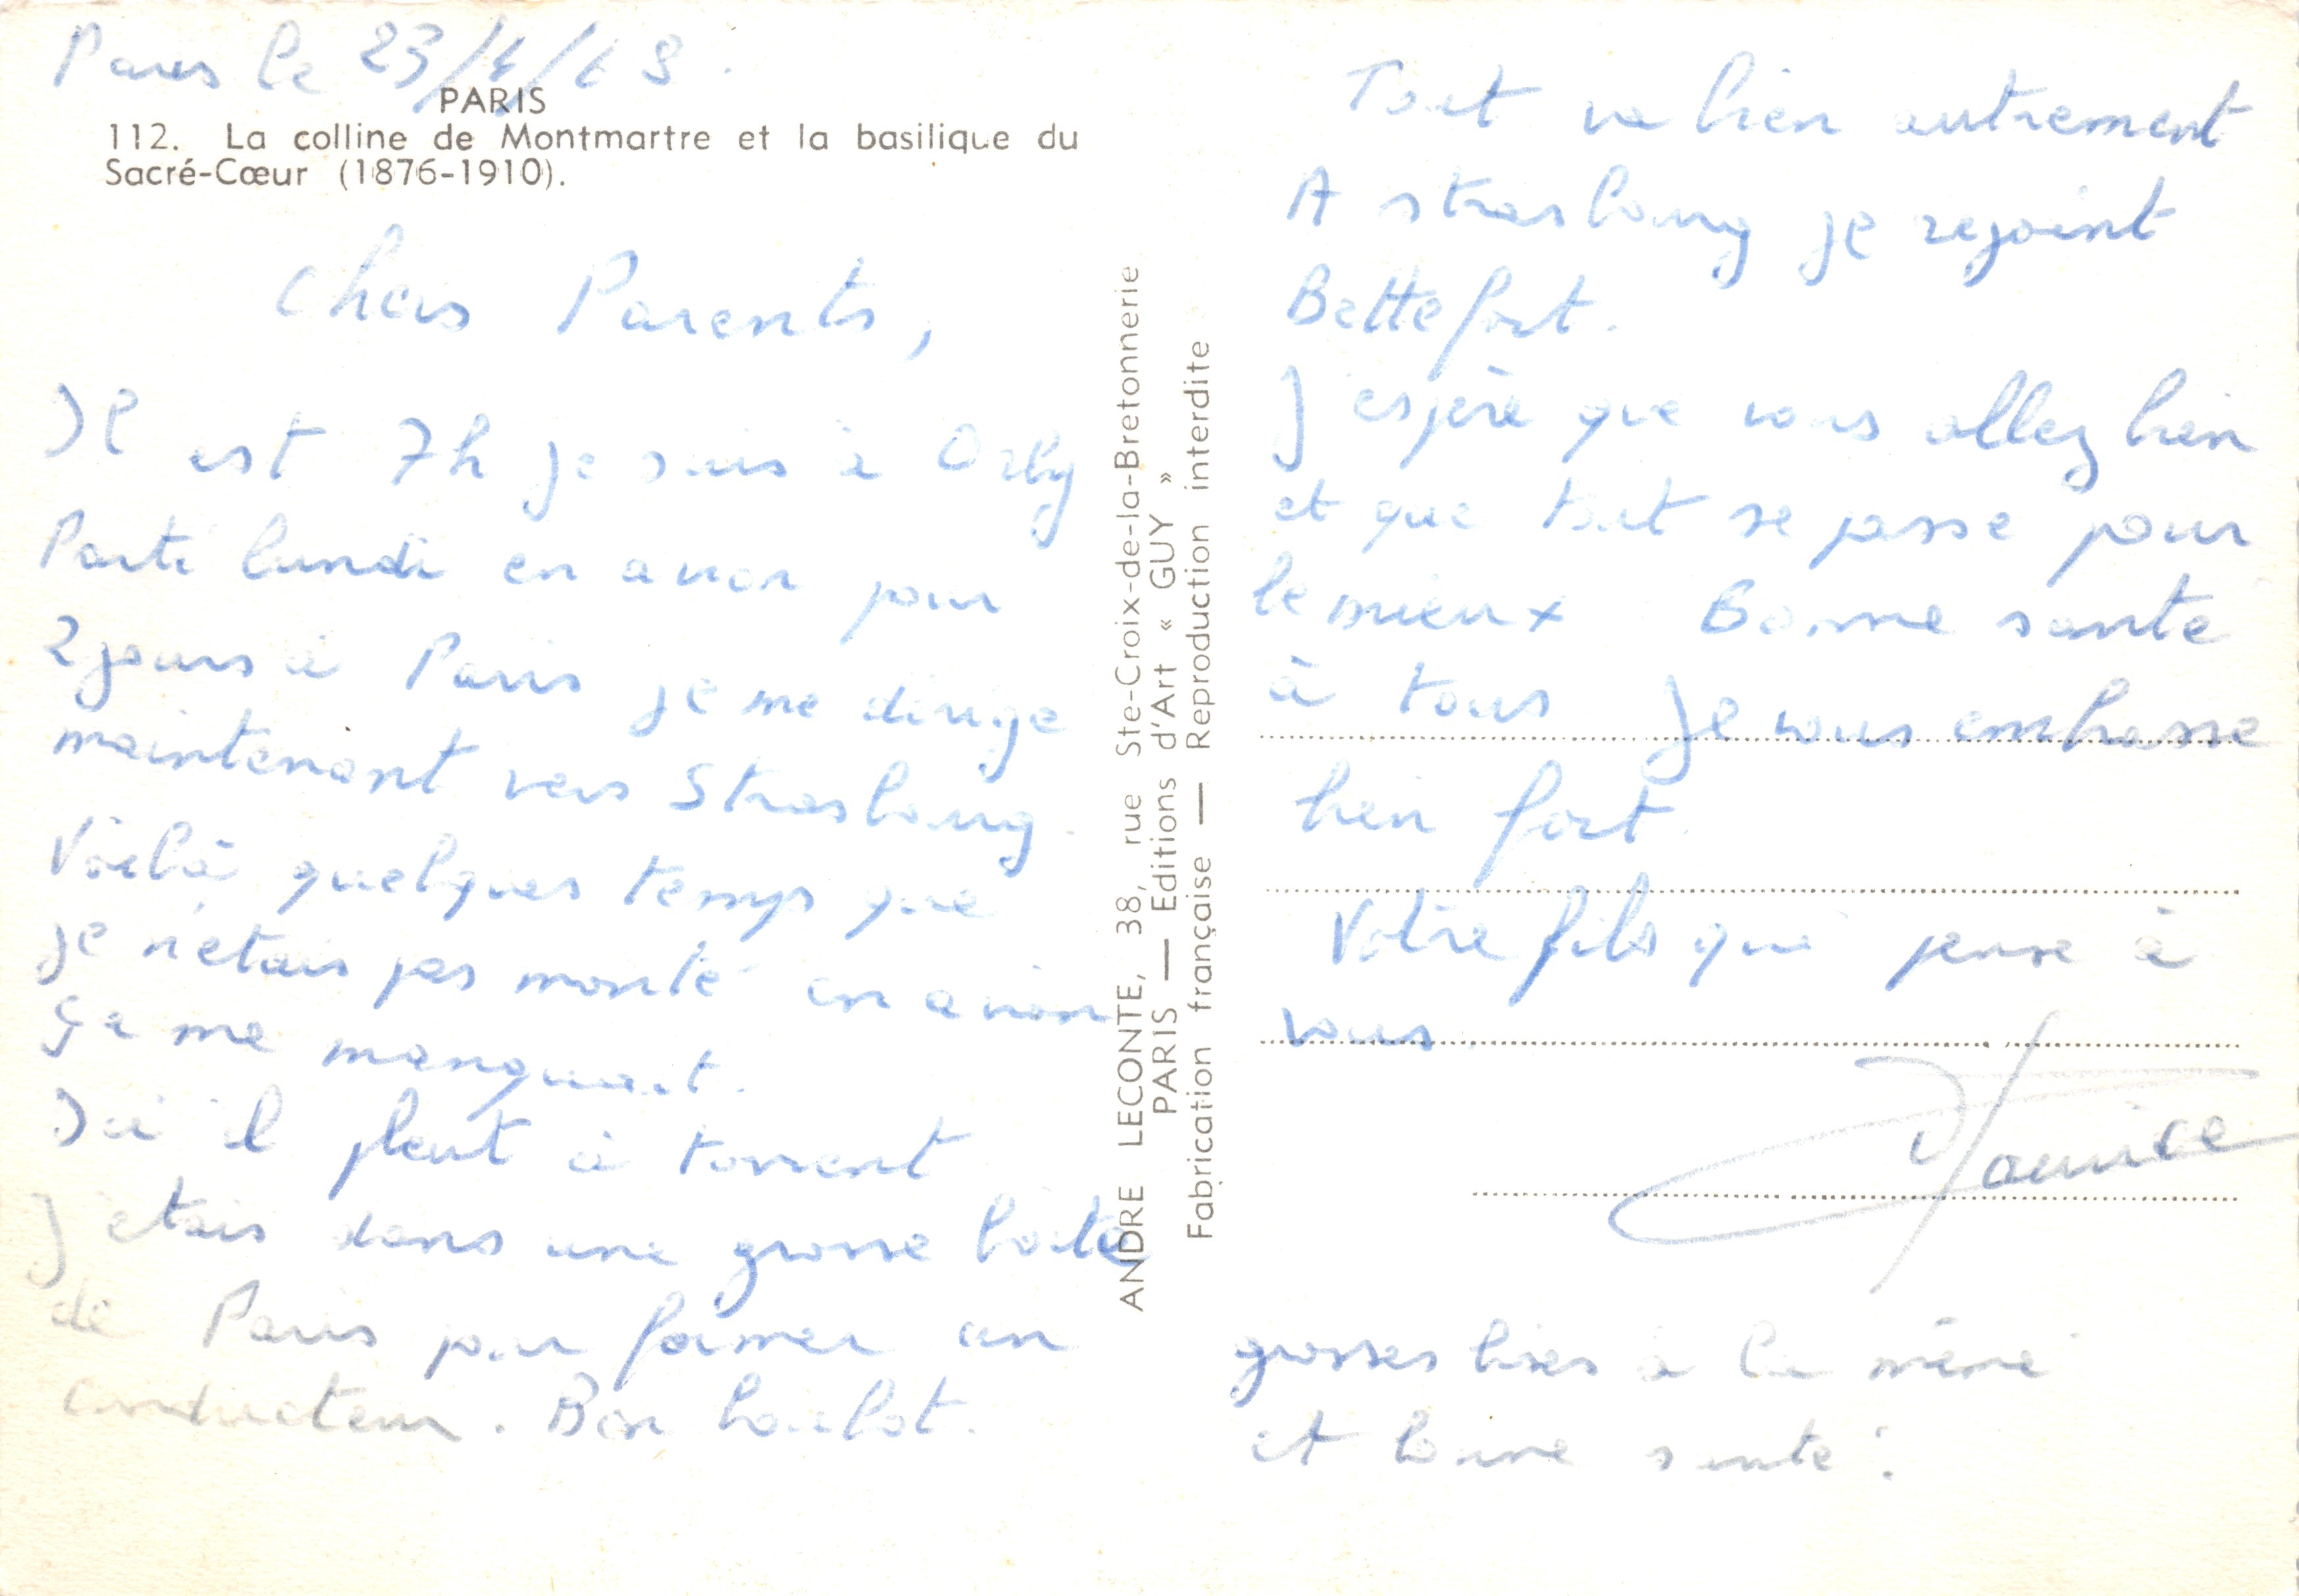 Paris le 23/4/68.
PARIS
112. La colline de Montmartre et la basilique du
Sacré-Cœur (1876-1910).
Chers Parents,
Il est 7h je suis à Orly
Parti lundi en avion pour
2 jours à Paris je me dirige
maintenant vers Strasbourg.
Voilà quelques temps que
je n'étais pas monté en avion
ça me manquait.
Ici il pleut à torrent
J'étais dans une grosse boite
de Paris pour former un
conducteur. Bon boulot.
ANDRE LECONTE, 38, rue Ste-Croix-de-la-Bretonnerie
PARIS — Editions d'Art « GUY »
Fabrication française — Reproduction interdite
Tout va bien autrement
A strasbourg je rejoint
Bettefort.
J'espère que vous allez bien
et que tout se passe pour
le mieux Bonne santé
à tous Je vous embrasse
bien fort.
Votre fils qui pense à
vous.
grosses bises à la mémé
et bonne santé !